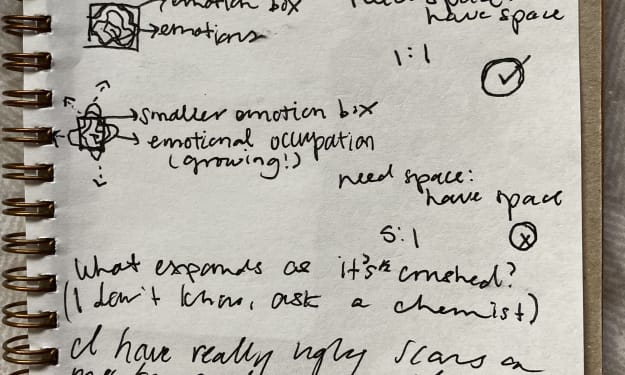 emotion box
→emotions
have space
1:1
→smaller emotion box
→emotional occupation
(growing!)
need space:
have space
5:1
What expands as it's crushed?
(I don't know, ask a chemist)
I have really ugly scars on